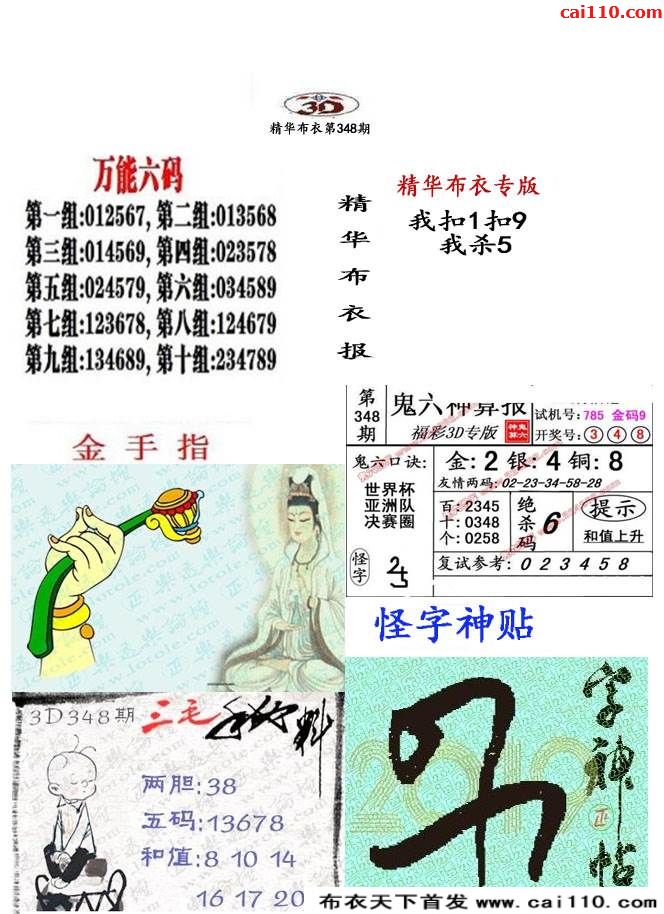 cai110.com
3D
精华布衣第348期
万能六码
第一组:012567, 第二组:013568
第三组:014569, 第四组:023578
第五组:024579, 第六组:034589
第七组:123678, 第八组:124679
第九组:134689, 第十组:234789
精华布衣报
精华布衣专版
我扣1扣9
我杀5
金手指
第348期
鬼六神算报
福彩3D专版
试机号:785 金码9
开奖号:③④⑧
鬼六口诀:
世界杯
亚洲队
决赛圈
金:2 银:4 铜:8
友情两码:02-23-34-58-28
百:2345
十:0348
个:0258
绝杀码 6
提示
和值上升
怪字
复试参考:023458
怪字神贴
3D348期
三毛
两胆:38
五码:13678
和值:8 10 14
16 17 20
2019
字神帖
布衣天下首发 www.cai110.com